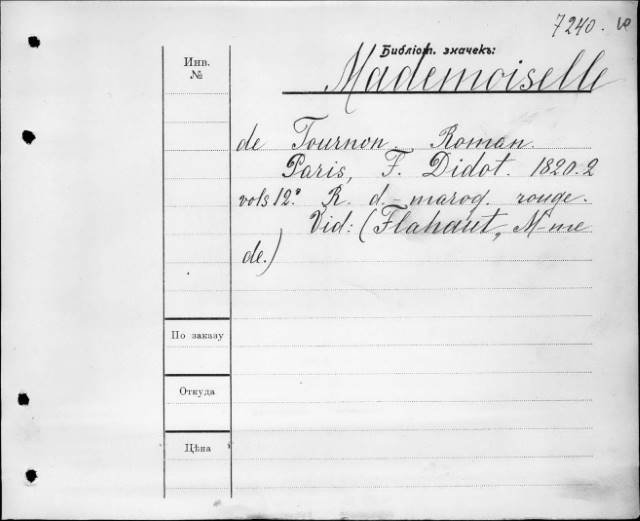 7240.
Библіот. значекъ:
Инв.
№
Mademoiselle
de Tournon. Roman.
Paris, F. Didot. 1820. 2
vols 12°. R. d.-maroq. rouge.
Vid: (Flahaut, M-me
de.)
По заказу
Откуда
Цѣна